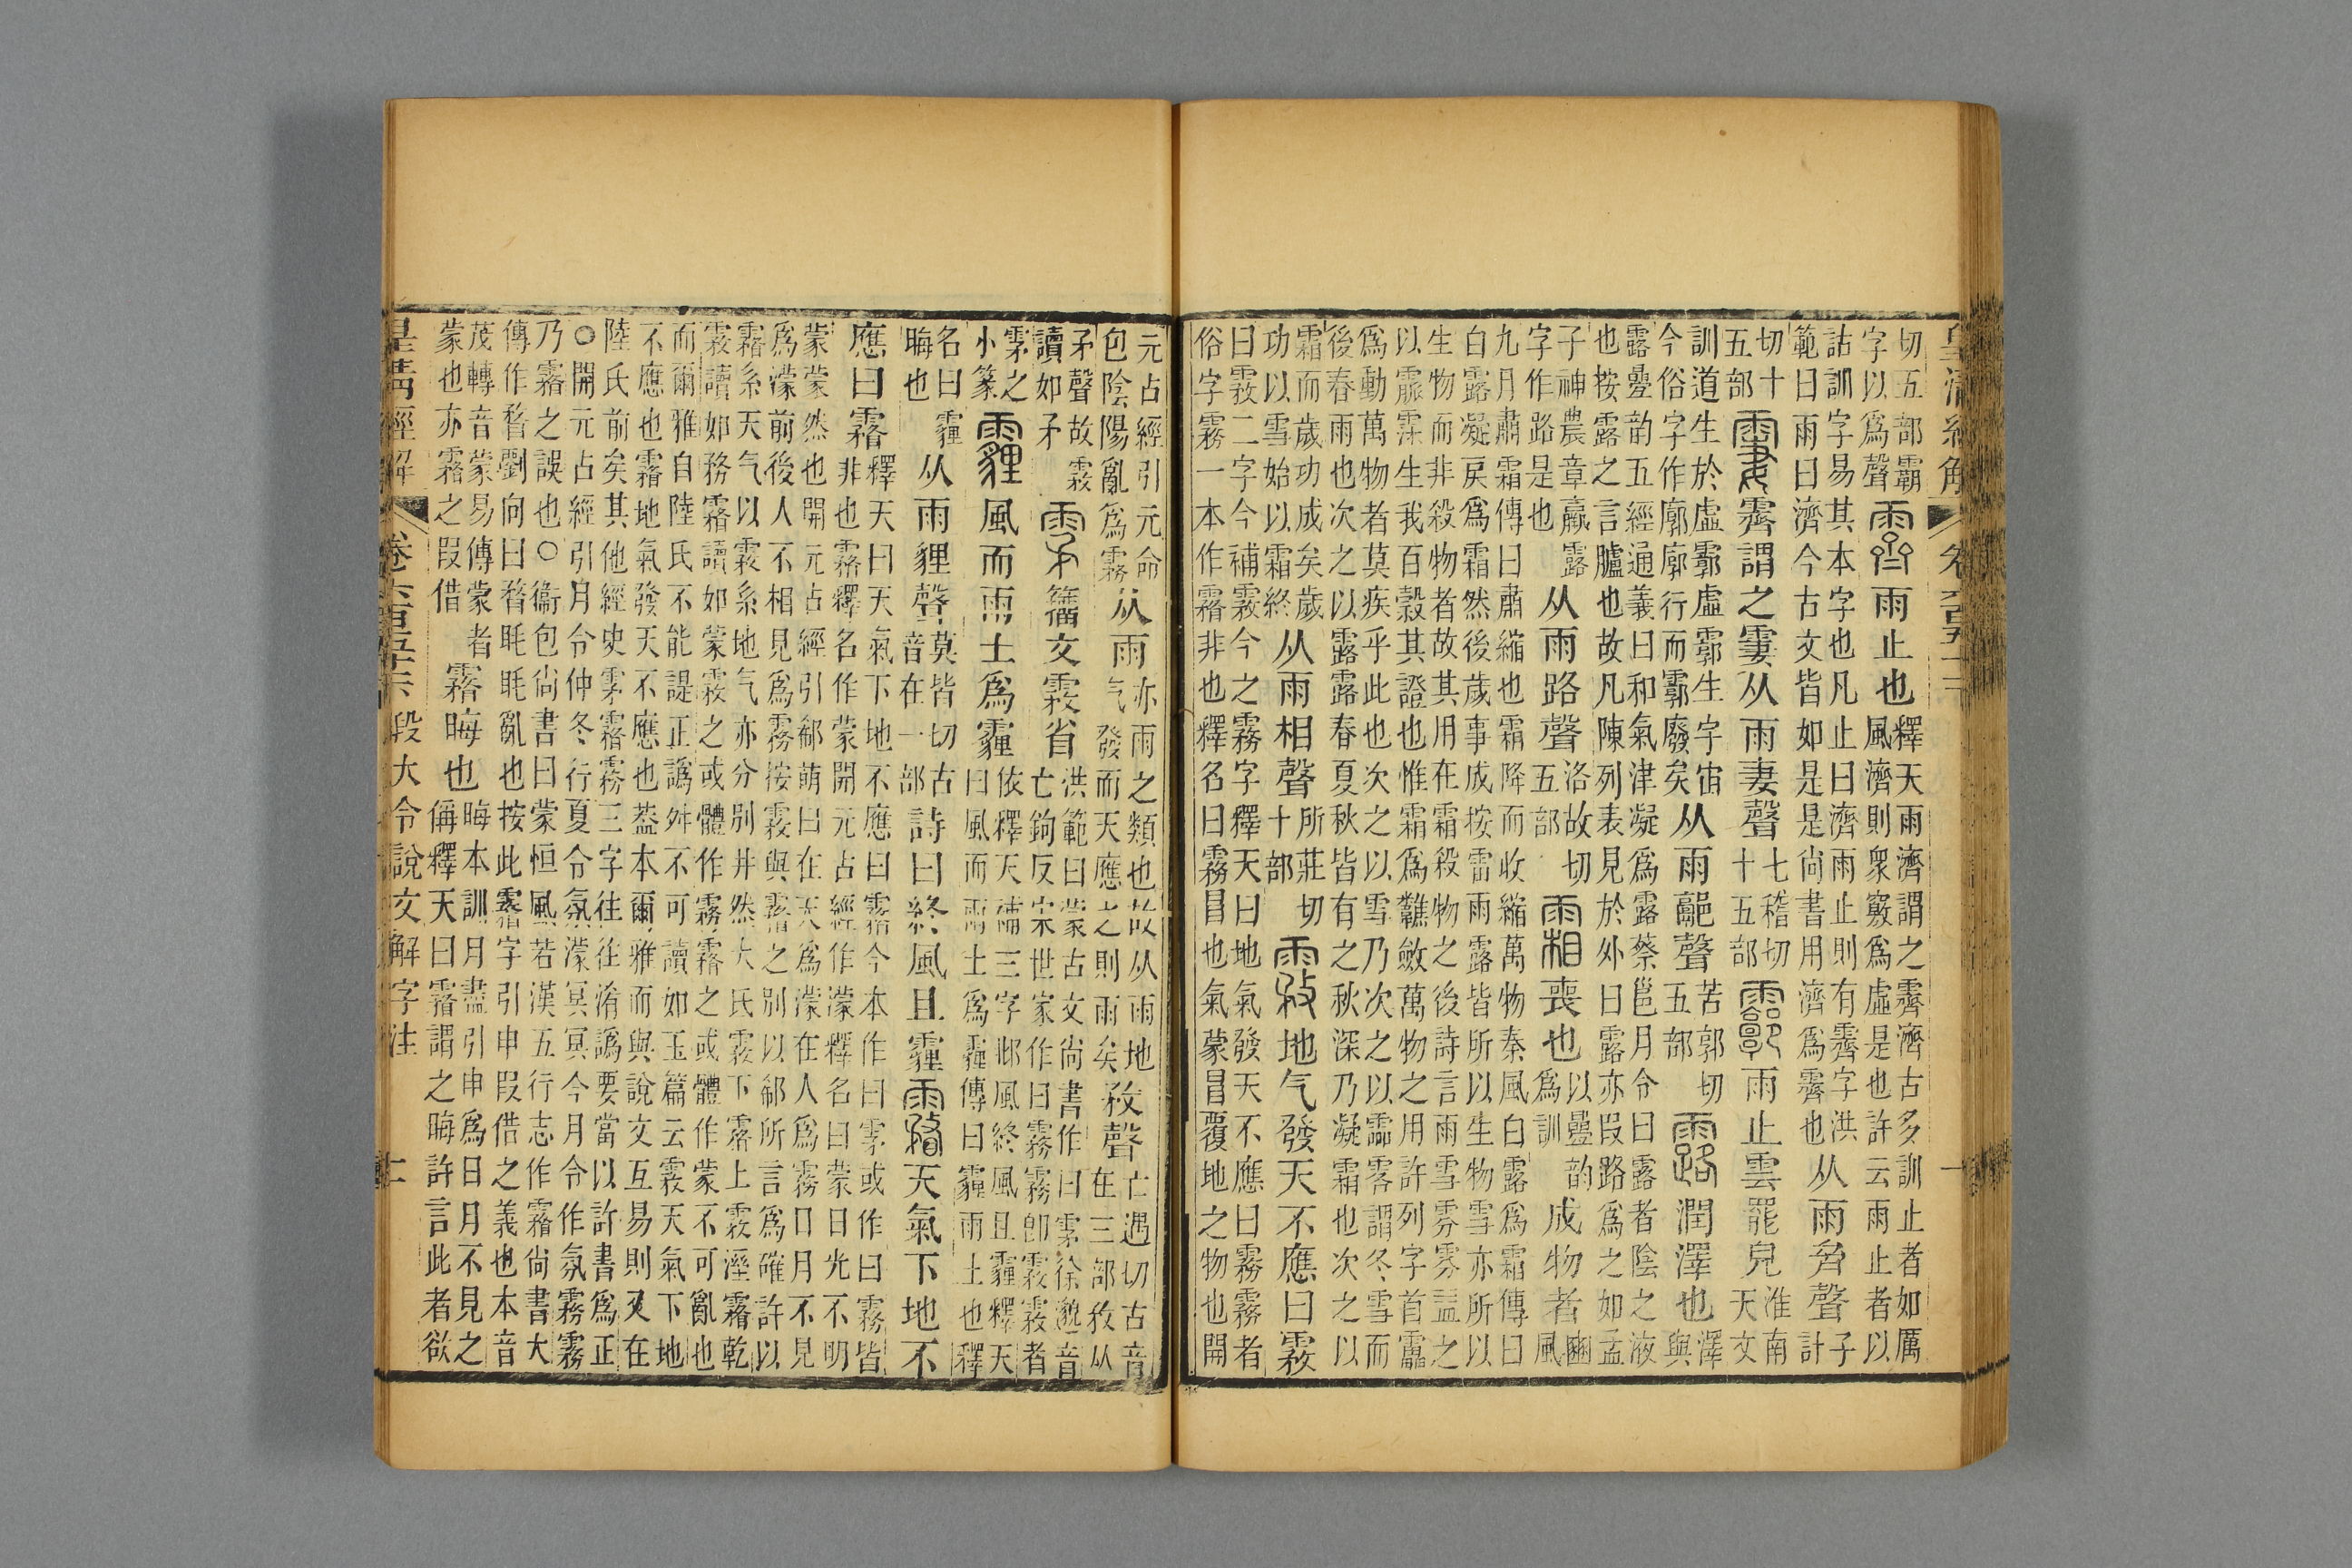 皇清經解　卷六百五十六
切五部霸
字以爲聲
霽雨止也
釋天雨濟謂之霽濟古多訓止者如厲
風濟則衆竅爲虛是也許云雨止者以
詁訓字易其本字也凡止曰濟雨止則有霽字洪
範曰雨曰濟今古文皆如是是尙書用濟爲霽也
从雨齊聲
子
計
切十
五部
䨴霽謂之䨴从雨妻聲
七稽切
十五部
霩雨止雲罷皃
淮南
天文
訓道生於虛霩虛霩生宇宙
今俗字作廓廓行而霩廢矣
从雨郭聲
苦郭切
五部
露潤澤也
澤
與
露疊韵五經通義曰和氣津凝爲露蔡邕月令曰露者陰之液
也按露之言臚也故凡陳列表見於外曰露亦叚路爲之如孟
子神農章羸露
字作路是也
从雨路聲
洛故切
五部
霜喪也
以疊韵
爲訓
成物者
豳
風
九月肅霜傳曰肅縮也霜降而收縮萬物秦風白露爲霜傳曰
白露凝戾爲霜然後歲事成按雷雨露皆所以生物雪亦所以
生物而非殺物者故其用在霜殺物之後詩言雨雪雰雰益之
以霡霂生我百穀其證也惟霜爲䨦斂萬物之用許列字首靁
爲動萬物者莫疾乎此也次之以雪乃次之以霝䨬謂冬雪而
後春雨也次之以露露春夏秋皆有之秋深乃凝霜也次之以
霜而歲功成矣歲
功以雪始以霜終
从雨相聲
所莊切
十部
霚地气發天不應曰霚
曰霚二字今補霚今之霧字釋天曰地氣發天不應曰霧霧者
俗字霧一本作霿非也釋名曰霧冒也氣蒙冒覆地之物也開
元占經引元命
包陰陽亂爲霧
从雨
亦雨之類也故从雨地
气發而天應之則雨矣
敄聲
亡遇切古音
在三部敄从
矛聲故霚
讀如矛
雺籒文霚省
洪範曰蒙古文尙書作曰雺徐邈音
亡鉤反宋世家作曰霧霧卽霚霚者
雺之
小篆
霾風而雨土爲霾
依釋天補三字邶風終風且霾釋天
曰風而雨土爲霾傳曰霾雨土也釋
名曰霾
晦也
从雨貍聲
莫皆切古
音在一部
詩曰終風且霾霿天氣下地不
應曰霿
釋天曰天氣下地不應曰霿今本作曰雺或作曰霧皆
非也霿釋名作蒙開元占經作濛釋名曰蒙日光不明
蒙蒙然也開元占經引郗萌曰在天爲濛在人爲霧日月不見
爲濛前後人不相見爲霧按霚與霿之別以郗所言爲確許以
霿系天气以霚系地气亦分別井然大氐霚下霿上霚溼霿乾
霚讀如務霿讀如蒙霚之或體作霧霿之或體作蒙不可亂也
而爾雅自陸氏不能諟正譌舛不可讀如玉篇云霚天氣下地
不應也霿地氣發天不應也葢本爾雅而與說文互易則又在
陸氏前矣其他經史雺霿霧三字往往淆譌要當以許書爲正
○開元占經引月令仲冬行夏令氛濛冥冥今月令作氛霧霧
乃霿之誤也○衞包尙書曰蒙恒風若漢五行志作霿尙書大
傳作瞀劉向曰瞀眊眊亂也按此霿字引申叚借之義也本音
茂轉音蒙易傳蒙者
蒙也亦霿之叚借
霿晦也
晦本訓月盡引申爲日月不見之
偁釋天曰霿謂之晦許言此者欲
皇清經解　卷六百五十六　段大令說文解字注　十一